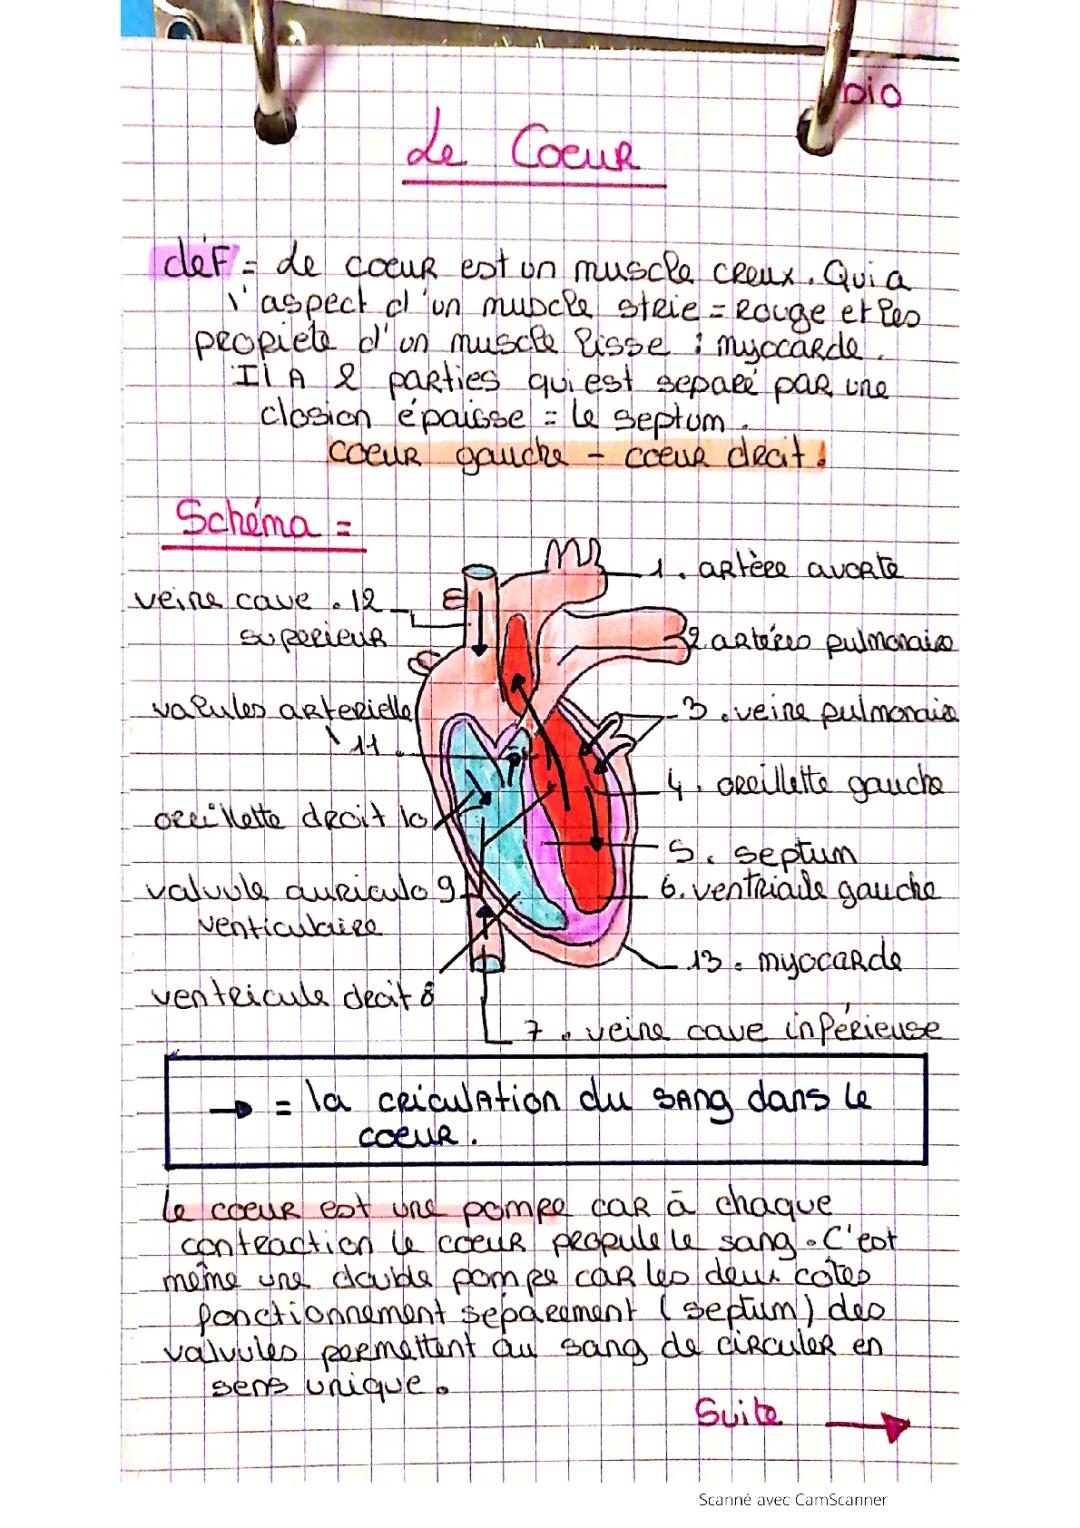 bio
Le Coeur
déf = Le coeur est un muscle creux. Qui a
l'aspect d'un muscle strie = Rouge et les
propiete d'un muscle lisse : myocarde.
Il A 2 parties qui est separé par une
closion épaisse = le septum.
coeur gauche - coeur droit.
Schéma =
1. artère avorte
veine cave . 12
superieur
2. artères pulmonaire
valvules arterielle
11.
3. veine pulmonaire
4. oreillette gauche
oreillette droit 10
5. septum
valvule auriculo 9
venticulaire
6. ventriaule gauche
13. myocarde
ventricule droit 8
7. veine cave inférieuse
→ = la criculation du sang dans le
coeur.
Le coeur est une pompe car à chaque
contraction le coeur propule le sang. C'est
même une double pompe car les deux côtes
fonctionnement séparement (septum) des
valvules permettent au sang de circuler en
sens unique.
Suite →
Scanné avec CamScanner